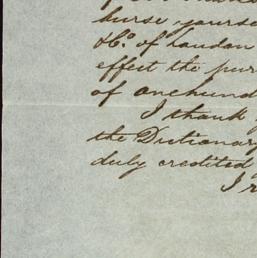 burse yourse
&Co. of London
effect the pur
of onehund
I thank
the Dictionary
duly credited
I r